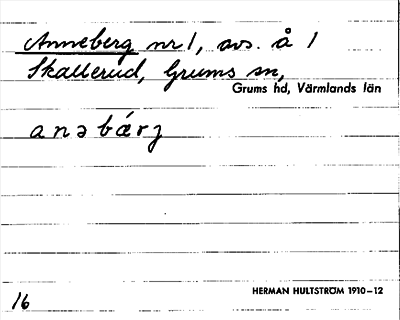 Anneberg nr 1, avs. å 1
Skallerud, Grums sn,
Grums hd, Värmlands län
a n ə b ǽ r j
HERMAN HULTSTRÖM 1910–12
16